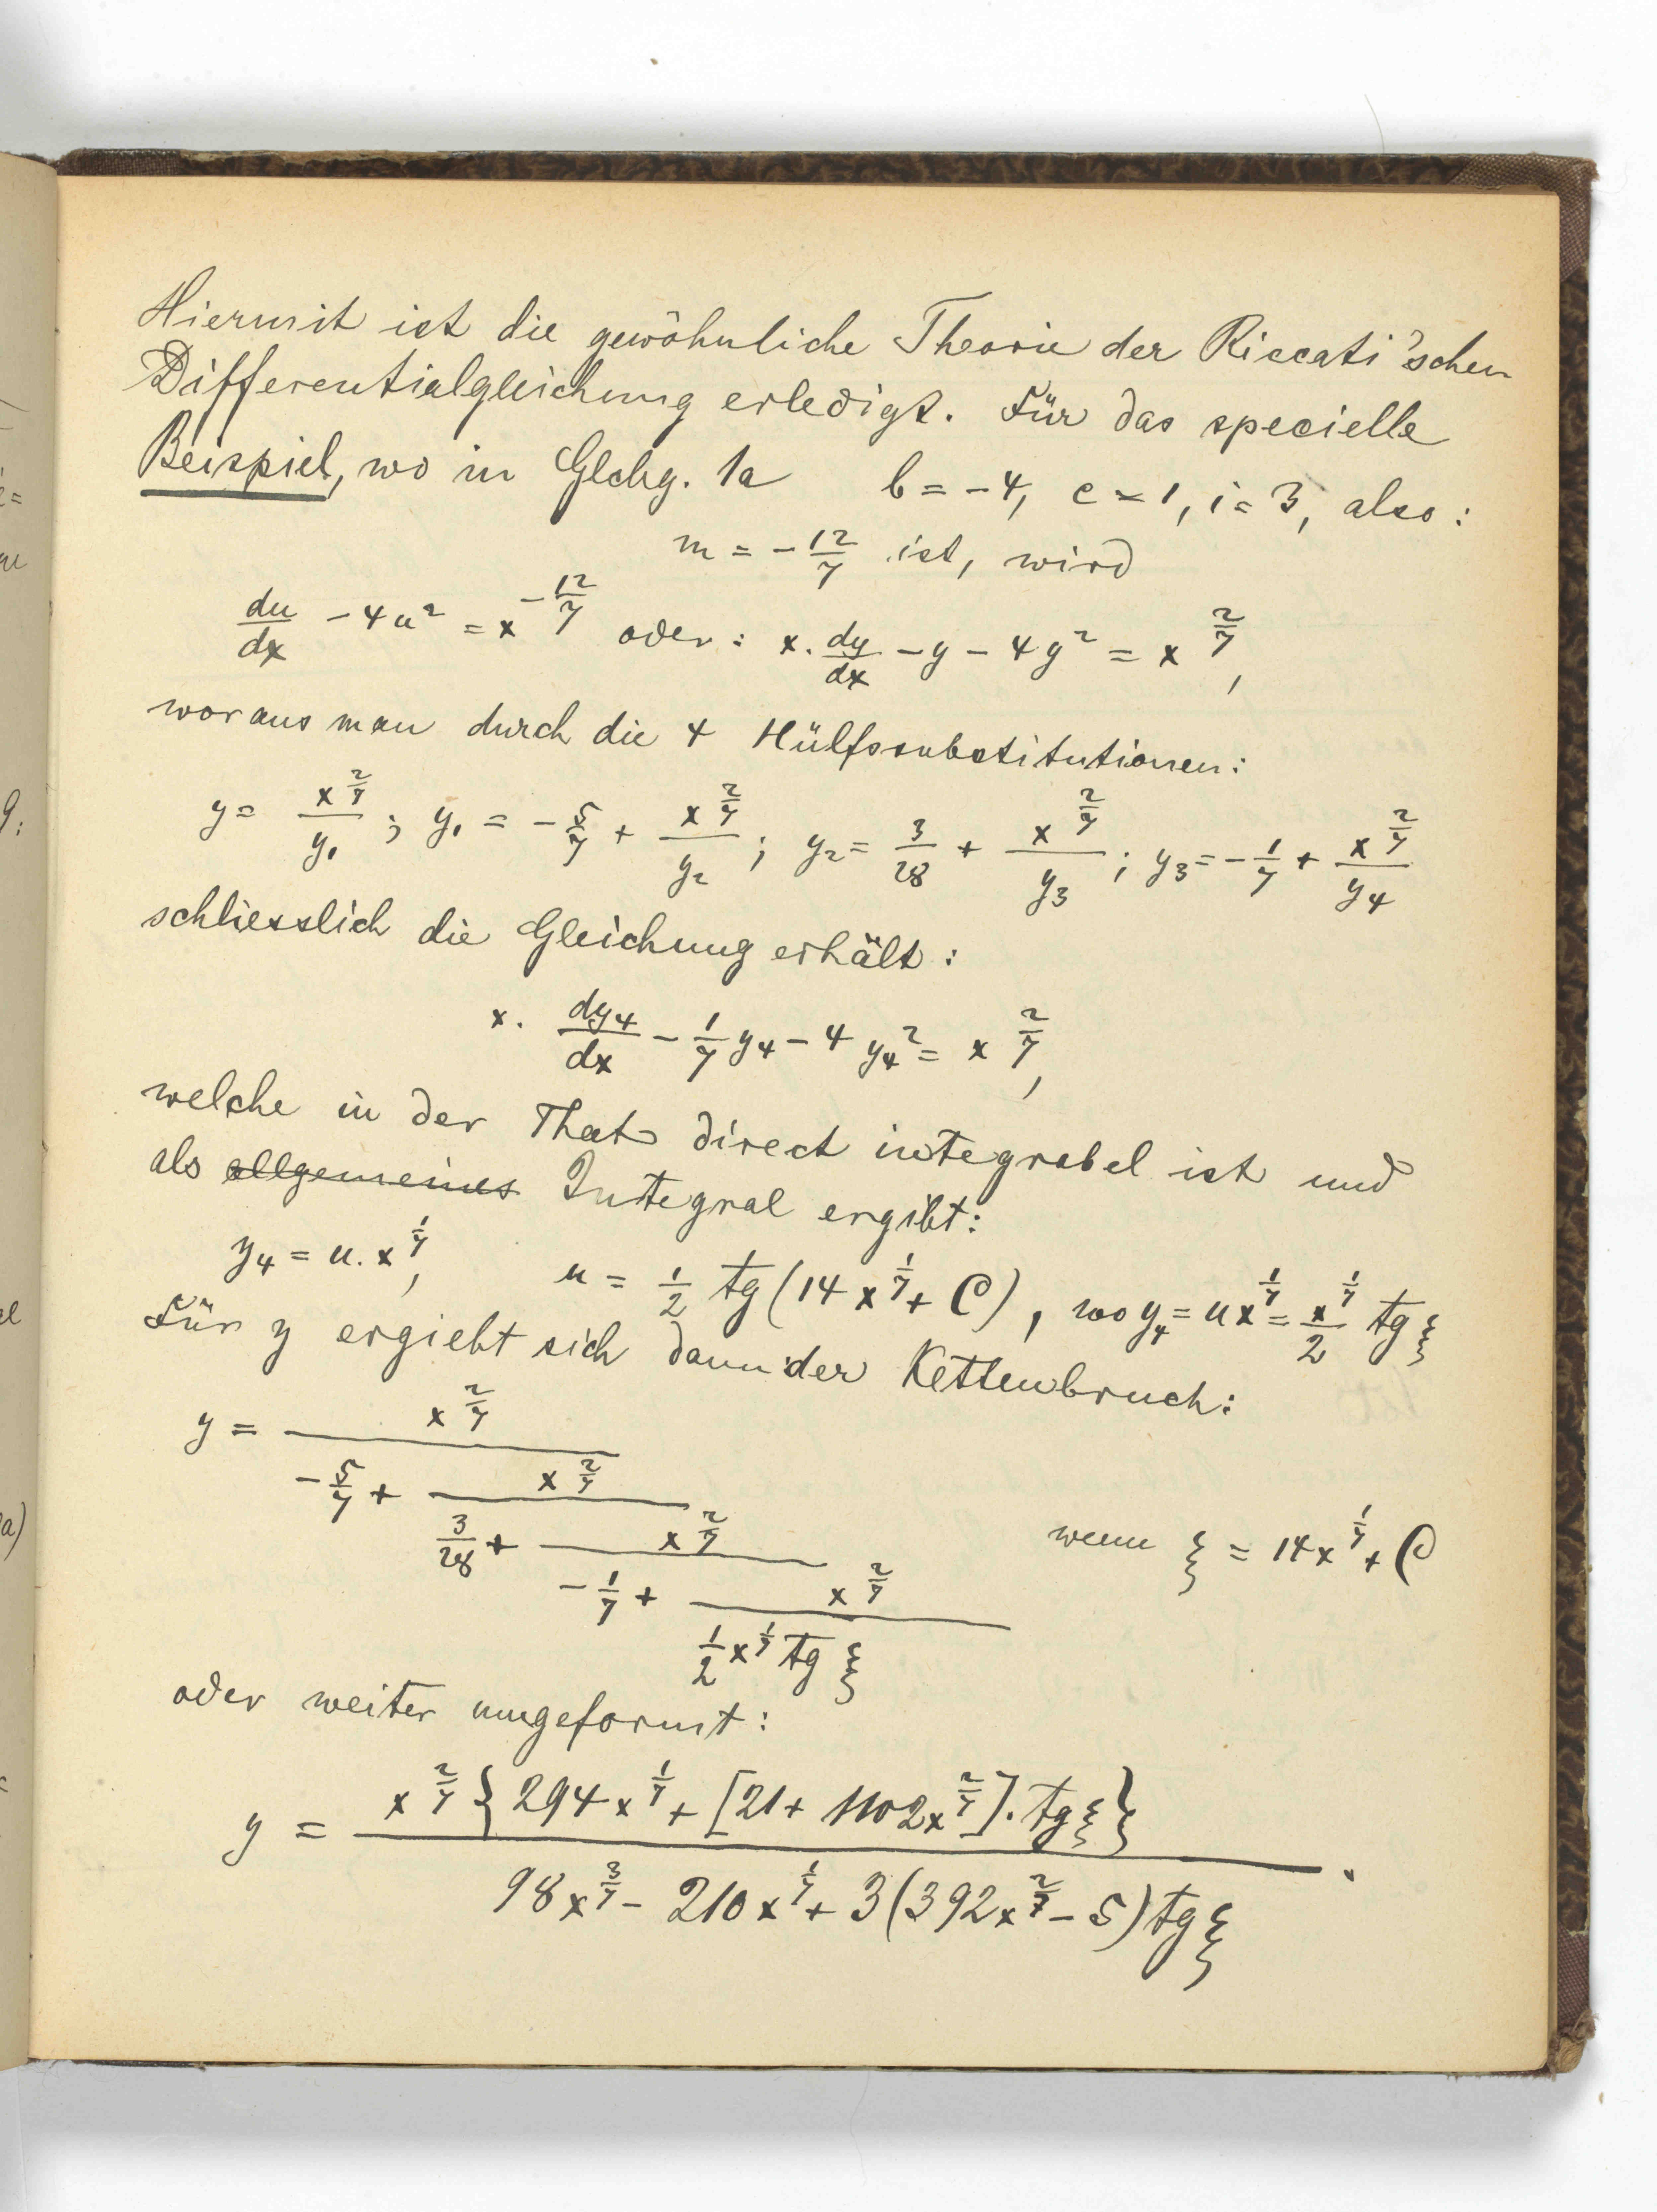 Hiermit ist die gewöhnliche Theorie der Riccati'schen
Differentialgleichung erledigt. Für das specielle
Beispiel, wo in Glchg. 1a b = -4, c = 1, i = 3, also:
m = -12/7 ist, wird
du/dx - 4u² = x^(-12/7) oder: x. dy/dx - y - 4y² = x^(2/7),
woraus man durch die 4 Hülfssubstitutionen:
y = x^(2/7)/y₁ ; y₁ = -5/7 + x^(2/7)/y₂ ; y₂ = 3/28 + x^(2/7)/y₃ ; y₃ = -1/7 + x^(2/7)/y₄
schliesslich die Gleichung erhält:
x. dy₄/dx - 1/7 y₄ - 4 y₄² = x^(2/7),
welche in der That direct integrabel ist und
als allgemeines Integral ergibt:
y₄ = u. x^(1/7), u = 1/2 tg(14x^(1/7) + C), wo y₄ = ux^(1/7) = x^(1/7)/2 tg ξ
Für y ergiebt sich dann der Kettenbruch:
y = x^(2/7)
-5/7 + x^(2/7)
3/28 + x^(2/7)
wenn ξ = 14x^(1/7) + C
-1/7 + x^(2/7)
1/2 x^(1/7) tg ξ
oder weiter umgeformt:
y = x^(2/7) {294x^(1/7) + [21 + 1102x^(2/7)]. tg ξ}
98x^(3/7) - 210x^(1/7) + 3(392x^(2/7) - 5) tg ξ